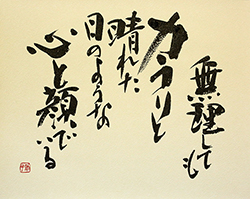 無理しても
カラリと
晴れた
日のような
心と顔でいる